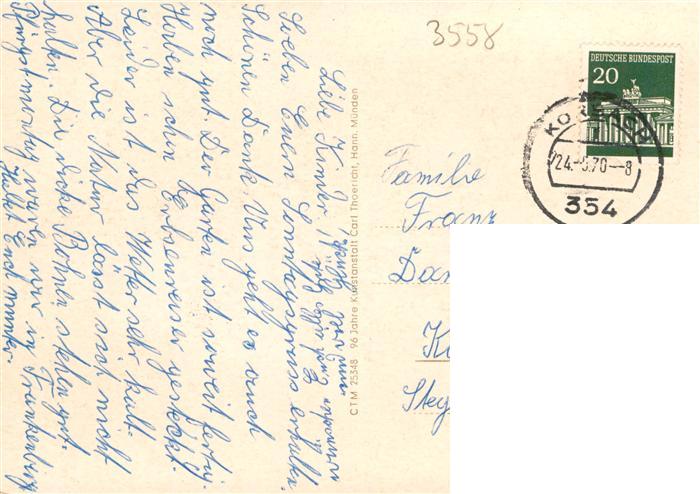 3558
DEUTSCHE BUNDESPOST
20
24.-5.70--8
354
Familie
Franz
CTM 25348 96 Jahre Kunstanstalt Carl Thoericht, Hann. Münden
Liebe Kinder!
Soeben Euren Sonntagsgruss erhalten.
Schönen Dank. Uns geht es auch
noch gut. Der Garten ist soweit fertig.
Haben schon Erbsenreiser gesteckt.
Leider ist das Wetter sehr kalt.
Aber die Natur lässt sich nicht
halten. Die dicke Bohnen stehen gut.
Pfingstmontag waren wir in Frankenberg
Haltet Euch munter.